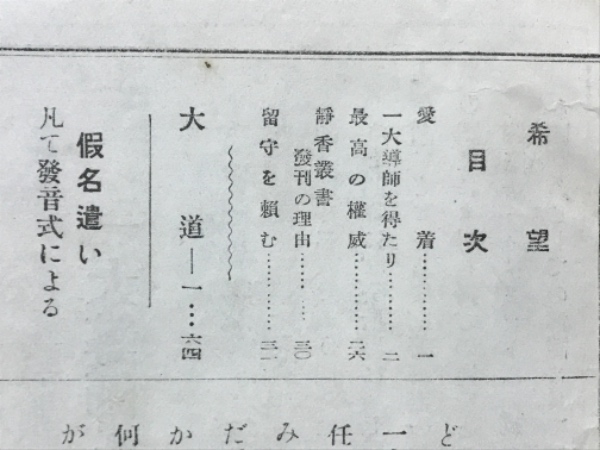 希望
目次
愛着…………一
一大導師を得たり…………二
最高の權威…………二六
靜香叢書
發刊の理由…………三〇
留守を賴む…………三一
大道―一…六四
假名遣い
凡て發音式による
ど一任みだか何が